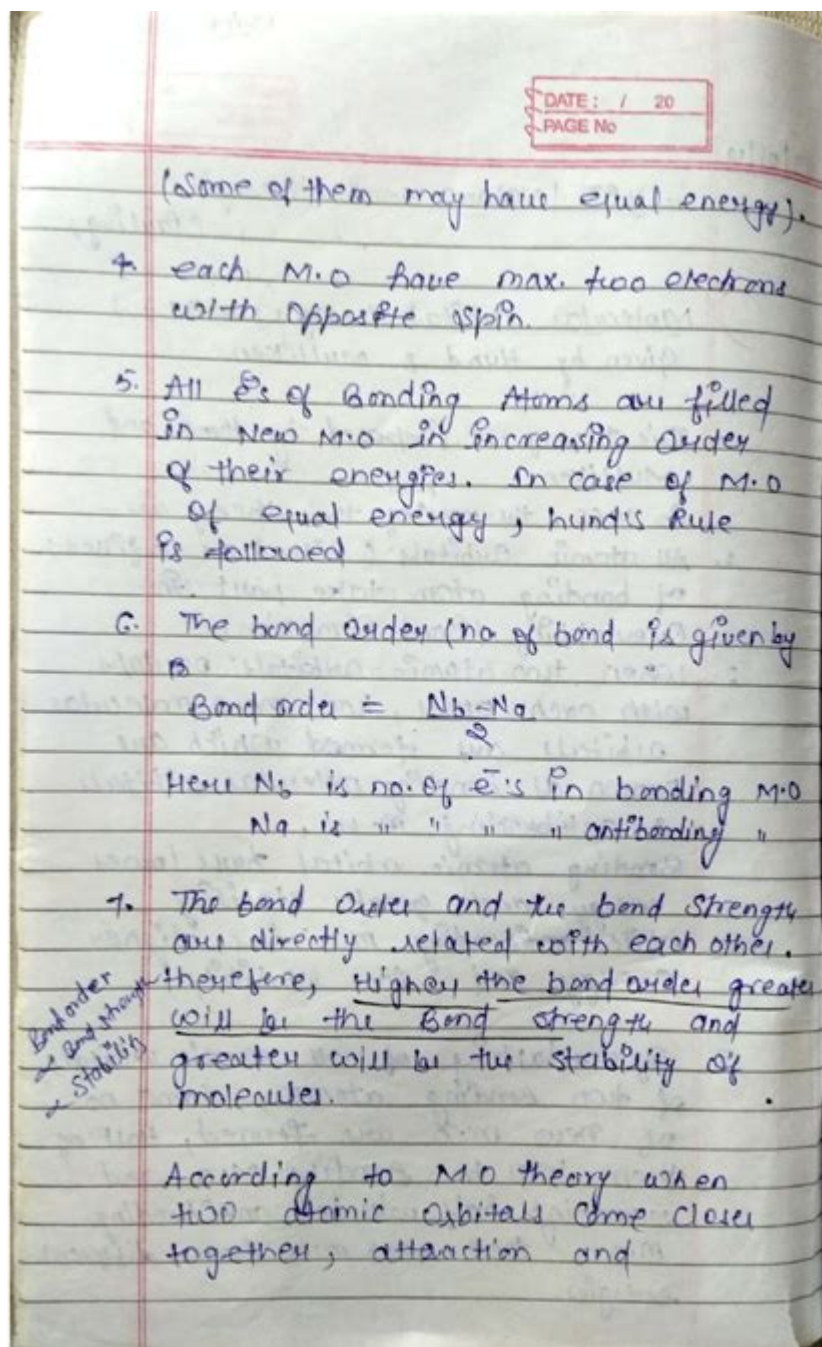 DATE: / 20
PAGE No
(Some of them may have equal energy).
4. each M.O have max. two electrons
with opposite spin.
5. All e⁻s of Bonding Atoms are filled
in New M.O in increasing Order
of their energies. In case of M.O
of equal energy, hund's Rule
is followed
6. The bond order (no of bond is given by
Bond order = Nb-Na
2
Here Nb is no. of e⁻'s in bonding M.O
Na is " " " " antibonding "
7. The bond Order and the bond Strength
are directly related with each other.
therefore, Higher the bond order greater
will be the Bond strength and
greater will be the stability of
molecules.
Bond order
∝ Bond strength
∝ Stability
According to M.O theory when
two atomic Orbitals come closer
together, attraction and